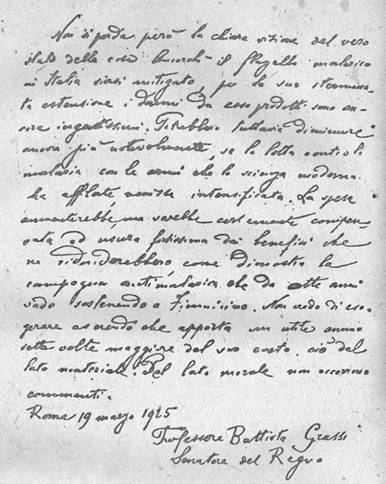 Non si perda però la chiara visione del vero
stato delle cose benché il flagello malarico
in Italia siasi mitigato, per la sua stermina-
ta estensione i danni da esso prodotti sono an-
cora ingentissimi. Potrebbero tuttavia diminuire
ancora più notevolmente, se la lotta contro la
malaria con le armi che la scienza moderna
ha affilate venisse intensificata. La spesa
aumenterebbe, ma sarebbe certamente compen-
sata ad usura fortissima dai benefizi che
ne ridonderebbero come dimostra la
campagna antimalarica che da otto anni
vado sostenendo a Fiumicino. Non credo di esa-
gerare asserendo che apporta un utile annuo
sette volte maggiore del suo costo, ciò del
lato materiale. Del lato morale non occorrono
commenti.
Roma 19 marzo 1925
Professore Battista Grassi
Senatore del Regno